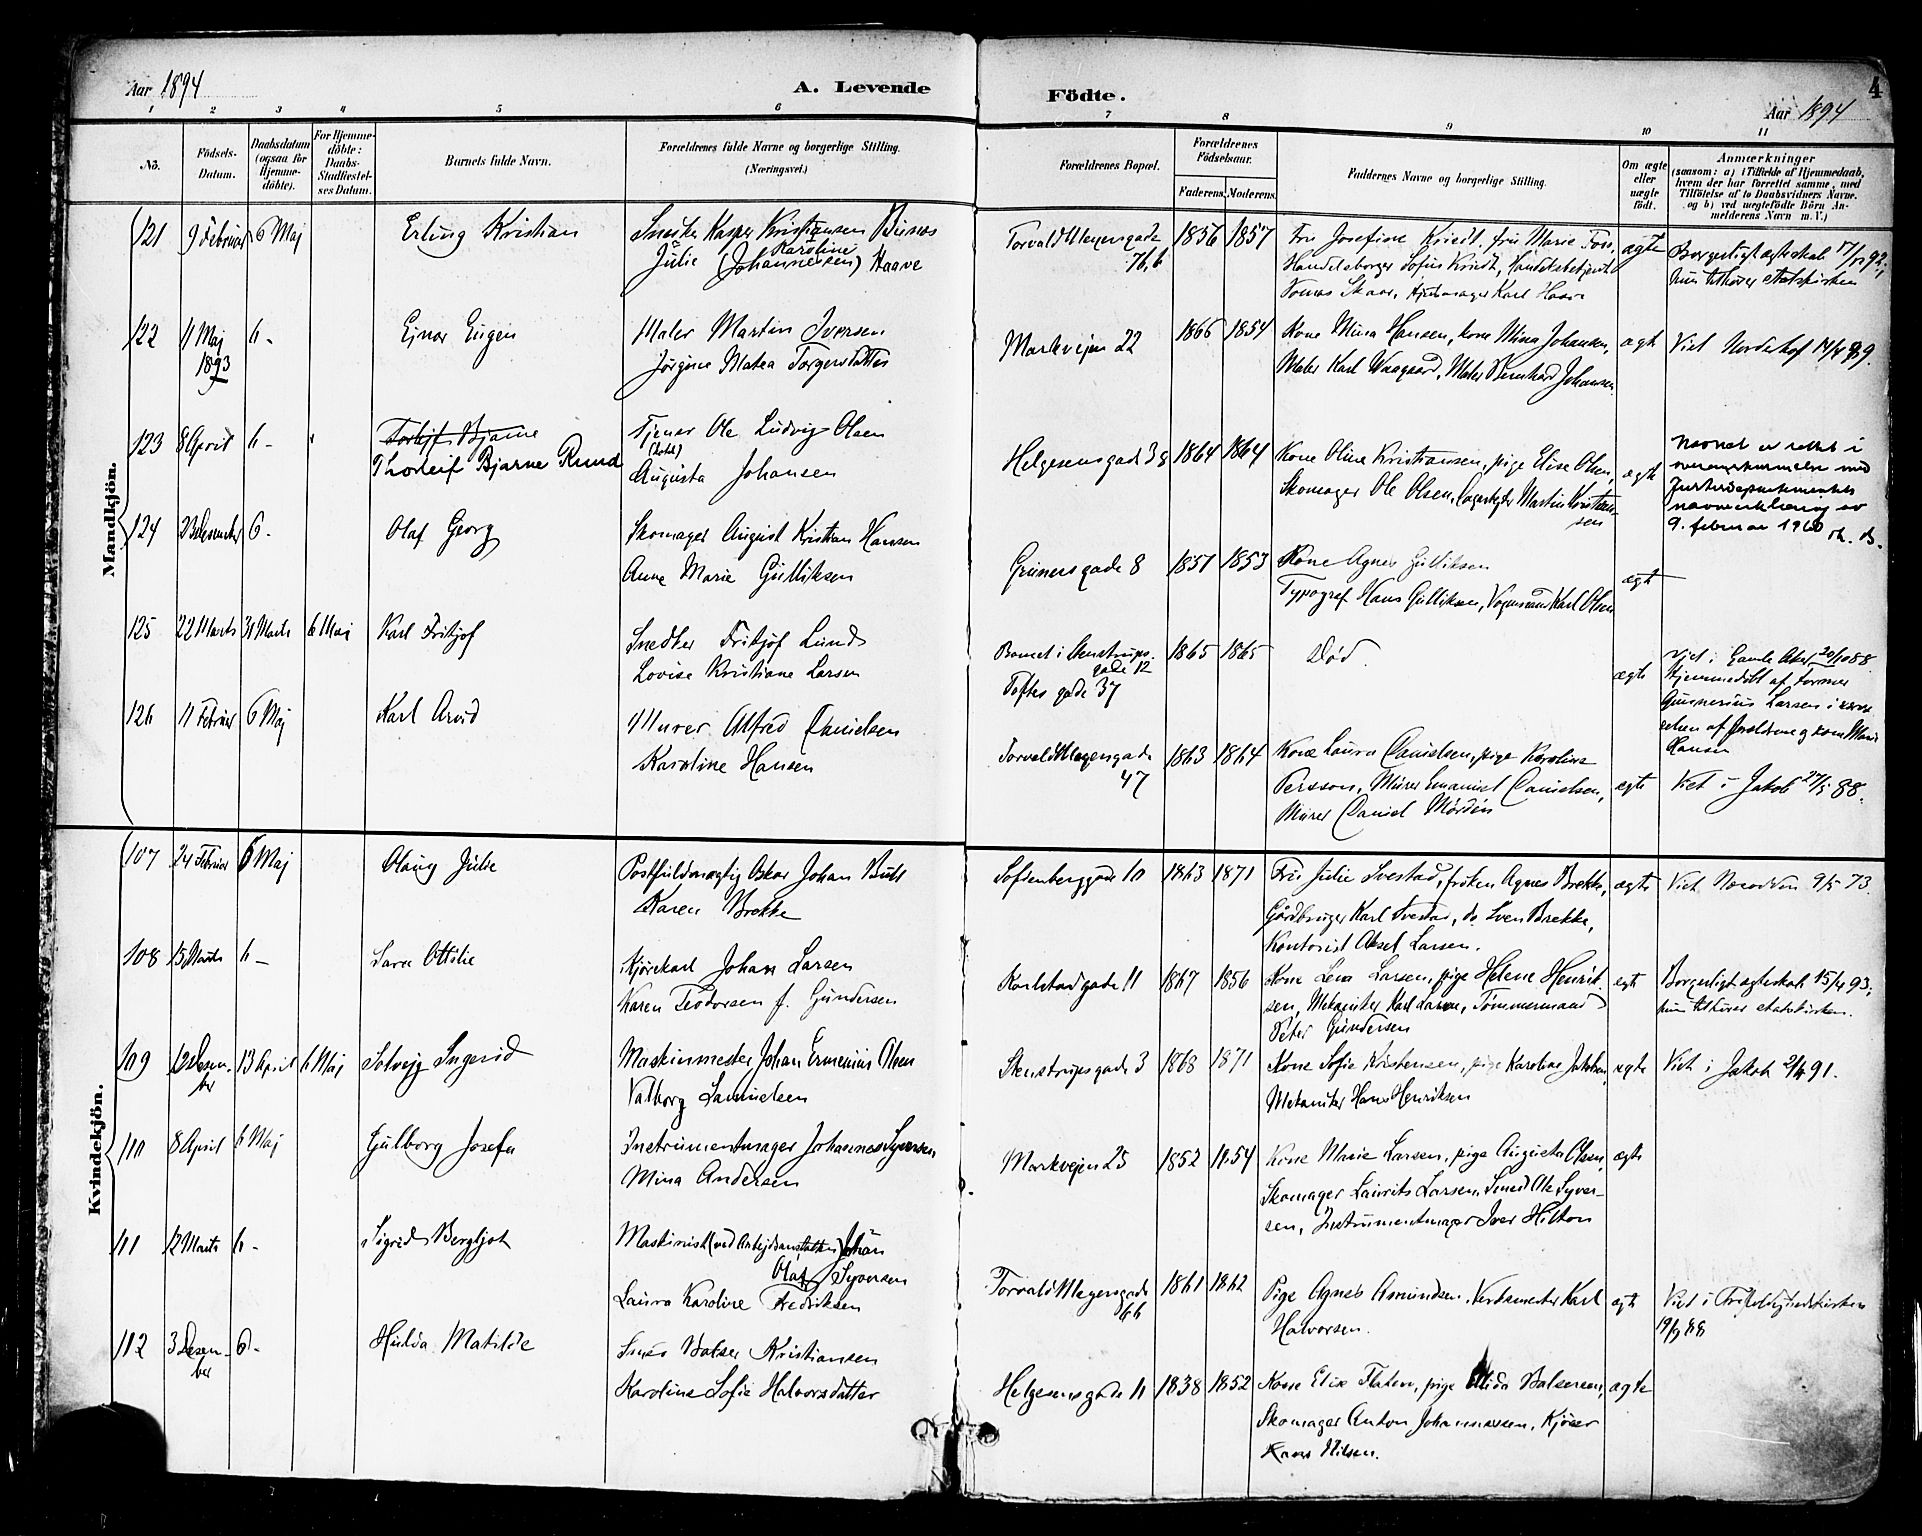 Aar 1894
A. Levende
Födte.
4
Aar 1894
1 2 3 4 5 6 7 8 9 10 11
No.
Födsels-
Datum.
Daabsdatum
(ogsaa for
Hjemme-
döbte).
For Hjemme-
döbte:
Daabs-
Stadfæstel-
ses Datum.
Barnets fulde Navn.
Forældrenes fulde Navne og borgerlige Stilling.
(Næringsvei.)
Forældrenes Bopæl.
Forældrenes
Födselsaar.
Faderens. Moderens.
Faddernes Navne og borgerlige Stilling.
Om ægte
eller
uægte
födt.
Anmærkninger
(saasom: a) i Tilfælde af Hjemmedaab,
hvem der har forrettet samme, med
Tilföielse af to Daabsvidners Navne,
og b) ved uægtefödte Börn An-
melderens Navn m. V.)
Mandkjön.
121 9 Februar 6 Maj Erling Kristian
Kasper Kristiansen
Karoline
Julie (Johannessen) Haave
Torvald Meyersgade
76,b
1856 1857
Fru Josefine Kriedt, fru Marie
Handelsborger Sofus Kriedt, Handelsbetjent
Tomas Skaar, Karl
ægte
Borgerligt ægteskab 92,
hun tilhører statskirken
122 11 Maj
1893
6 - Ejnar Eugen
Maler Martin Iversen
Jørgine Matea Torgersdatter
Markvejen 22
1866 1854
Kone Mina Hansen, kone Mina Johansen,
Maler Karl Waagaard, Maler Bernhard Johansen
ægte
Viet Norderhof 89.
123 8 April 6 - Torleif Bjarne
Thorleif Bjarne Rund
Tjener Ole Ludvig Olsen
(hotel)
Augusta Johansen
Helgesensgade 38
1864 1864
Kone Oline Kristiansen, pige Elise Olsen,
Skomager Ole Olsen, Martin Kristian-
sen
ægte
Navnet er rettet i
overensstemmelse med
Justisdepartementets
navneerklæring av
9. februar 1960
124 23 Desember 6 - Olaf Georg
Skomager August Kristian Hansen
Anne Marie Gulliksen
Grünersgade 8
1851 1853
Kone Agnes Gulliksen
Typograf Hans Gulliksen, Vognmand Karl Olsen
ægte
125 22 Marts 31 Marts 6 Maj Karl Fritjof
Snedker Fritjof Lund
Lovise Kristiane Larsen
Boende i Stenstrups-
gade 12
Toftes gade 37
1865 1865
Død.
ægte
viet i Gamle Aker 20/10 88
Hjemmedøbt af Former
Gunnerius Larsen i
af forældrene og kone Marie
Hansen
126 11 Februar 6 Maj Karl Arvid
Murer Alfred Danielsen
Karoline Hansen
Torvald Meyersgade
47
1863 1864
Kone Laura Danielsen, pige Karoline
Persson, Murer Emanuel Danielsen,
Murer Daniel Mördén
ægte
Viet i Jakob 27/5 88.
Kvindekjön.
107 24 Februar 6 Maj Olaug Julie
Postfuldmægtig Oskar Johan Bull
Karen Brekke
Sofienberggade 10
1863 1871
Fru Julie Svestad, frøken Agnes Brekke,
Gårdbruger Karl Svestad, do Sven Brekke,
Kontorist Aksel Larsen.
ægte
Viet Nesodden 9/5 73.
108 15 Marts 6 - Sara Ottilie
Kjørekarl Johan Larsen
Karen Teodorsen f. Gundersen
Karlstadgade 11
1867 1856
Kone Lena Larsen, pige Helene Henrik-
sen, Mekaniker Karl Larsen, Tømmermand
Peter Gundersen
ægte
Borgerligt ægteskab 15/4 93,
hun tilhører statskirken.
109 12 Desem-
ber
13 April 6 Maj Solvejg Ingerid
Maskinmester Johan Ermenius Olsen
Valborg Samuelsen
Stenstrupsgade 3
1868 1871
Kone Sofie Kristensen, pige Karoline Jakobsen,
Mekaniker Hans Henriksen
ægte
Viet i Jakob 2/4 91.
110 8 April 6 Maj Gulborg Josefa
Instrumentmager Johannes Syversen
Mina Andersen
Markvejen 25
1852 1854
Kone Marie Larsen, pige Augusta Olsen,
Skomager Laurits Larsen, Smed Ole Syver-
sen, Instrumentmager Iver Hilton
ægte
111 12 Marts 6 - Sigrid Bergljot
Maskinist (ved Arbejdsanstalten) Johan
Olaf Syversen
Laura Karoline Fredriksen
Torvald Meyersgade
66
1861 1862
Pige Agnes Amundsen, Verksmester Karl
Halvorsen.
ægte
Viet i Trefoldighedskirken
19/9 88
112 3 Desem-
ber
6 - Hulda Matilde
Smed Balser Kristiansen
Karoline Sofie Halvorsdatter
Helgesensgade 11
1838 1852
Kone Elise Flaten, pige Alida Balsersen,
Skomager Anton Johannessen, Kjører
Hans Nilsen.
ægte